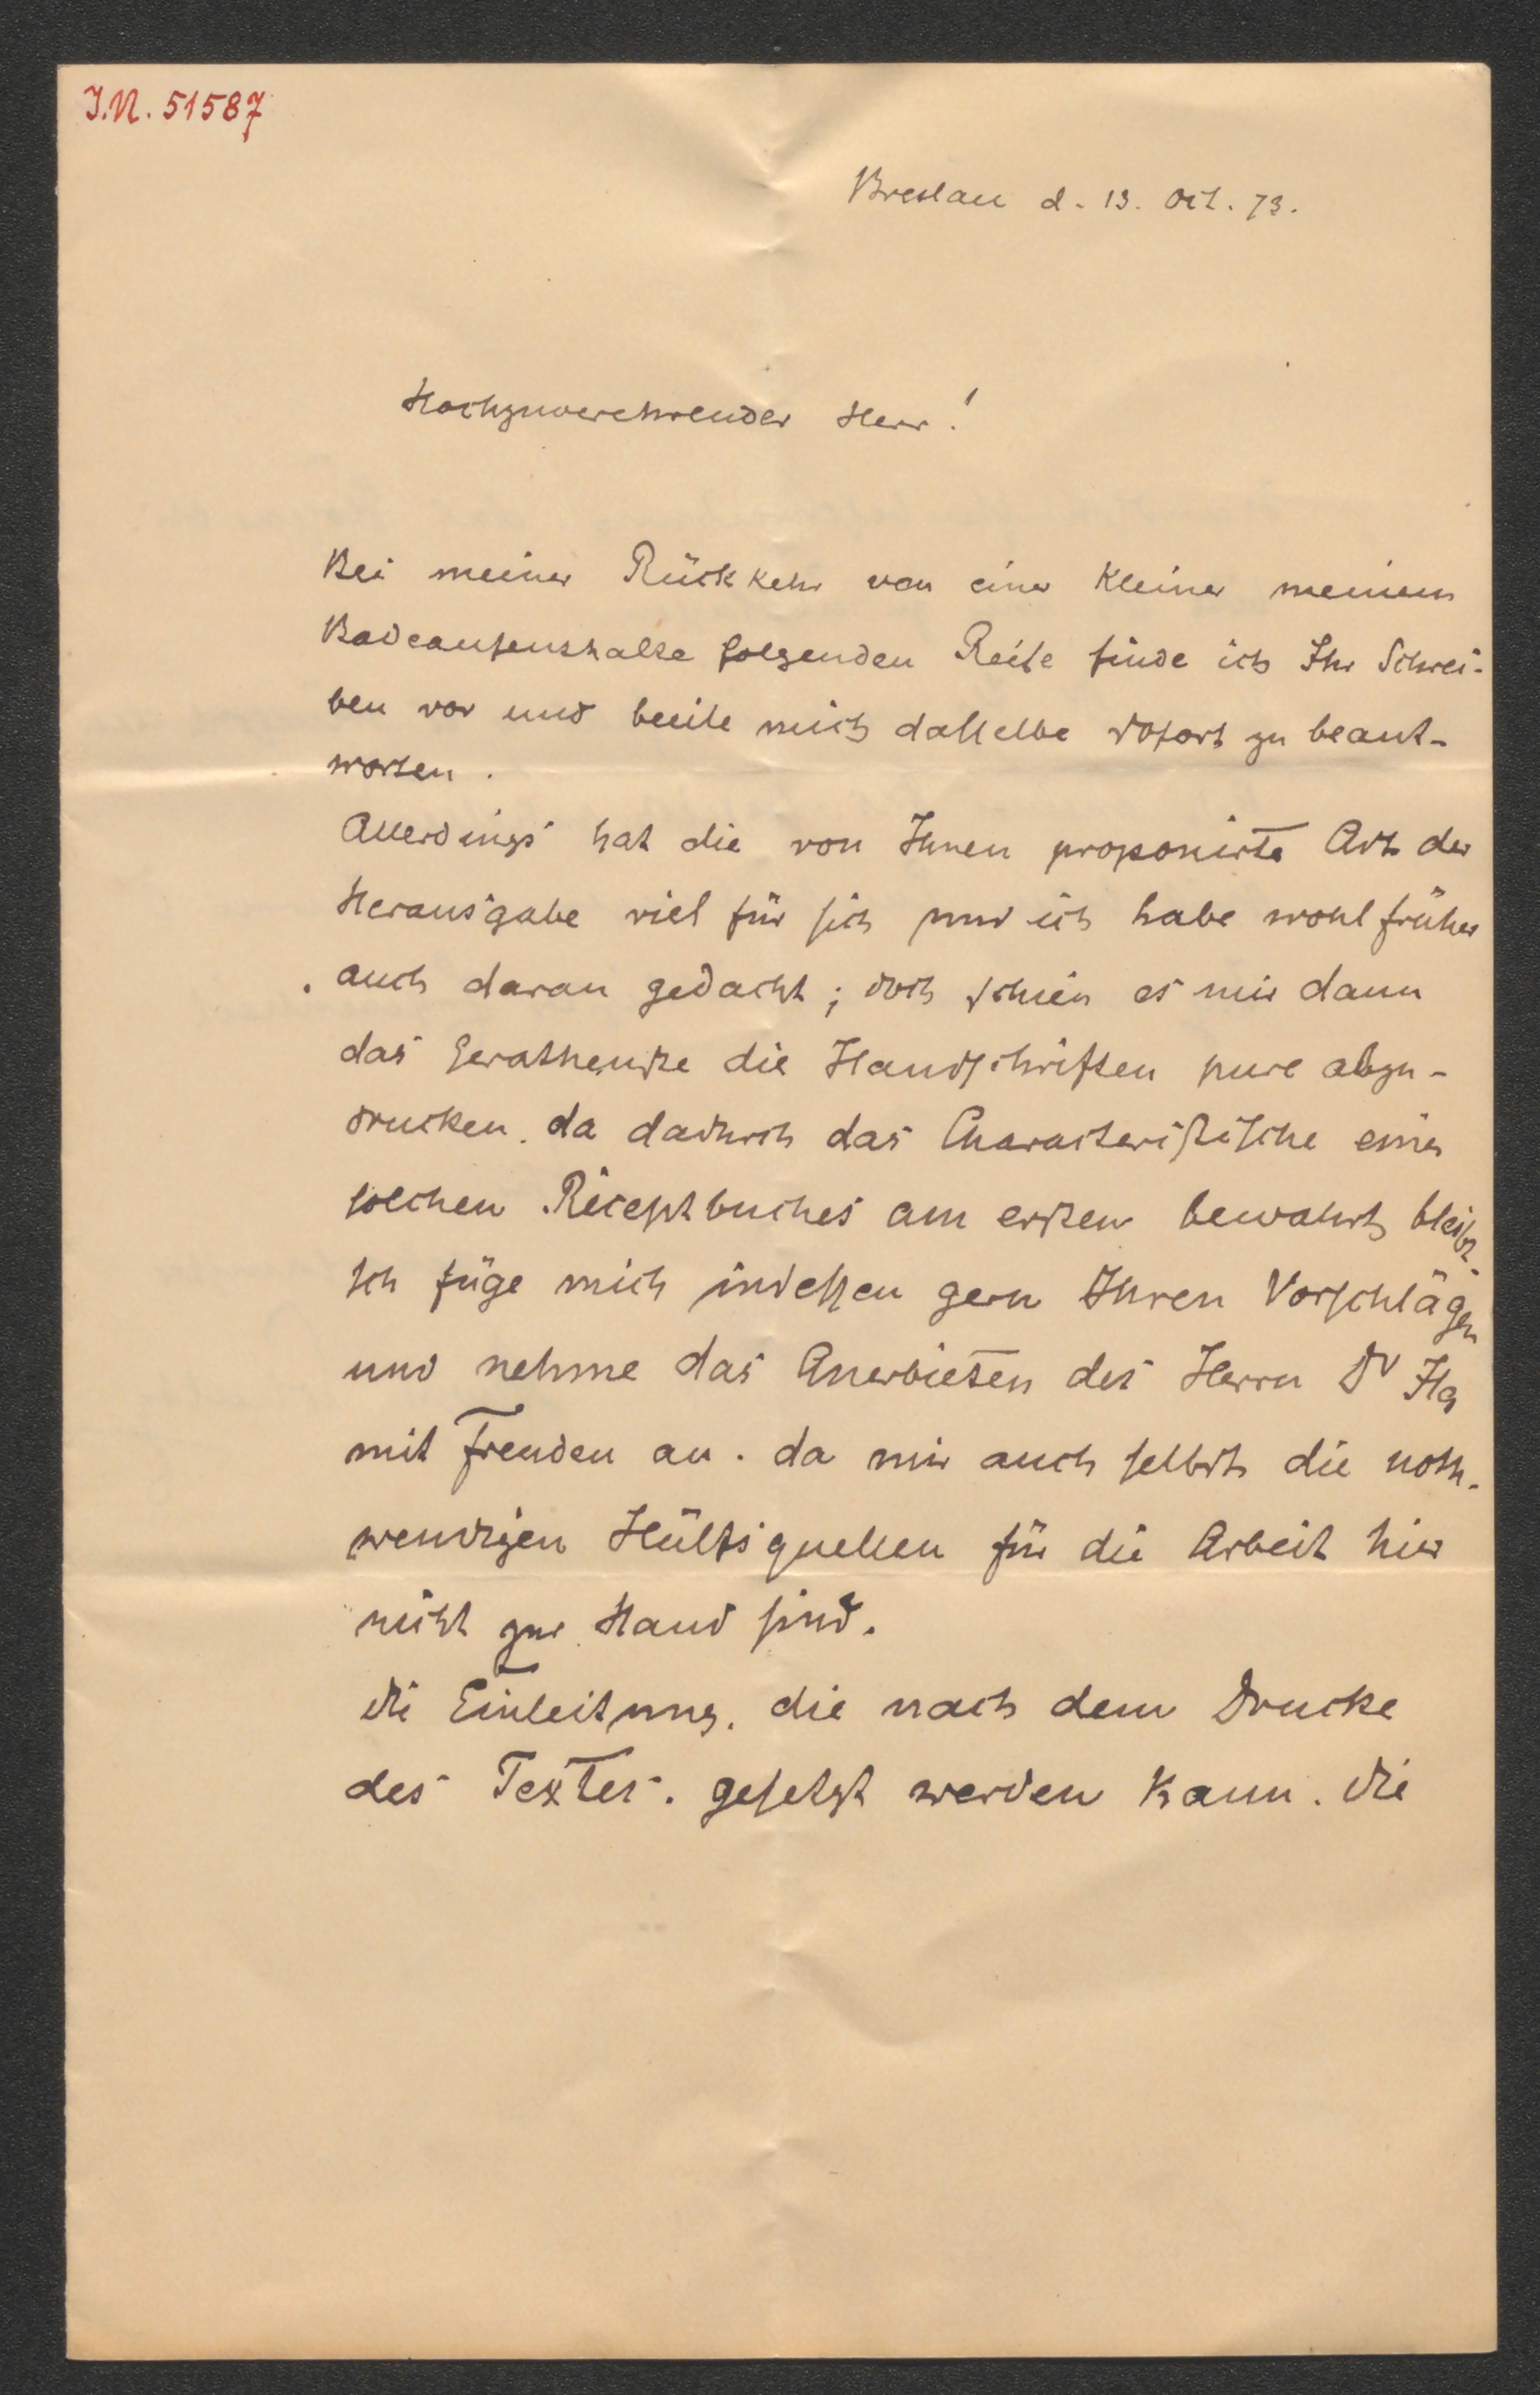 I.N. 51587
Breslau d. 13. Oct. 73.
Hochzuverehrender Herr!
Bei meiner Rückkehr von einer kleinen meinem
Badeaufenthalte folgenden Reise finde ich Ihr Schrei-
ben vor und beeile mich dasselbe sofort zu beant-
worten.
Allerdings hat die von Ihnen proponirte Art der
Herausgabe viel für sich und ich habe wohl früher
auch daran gedacht; doch schien es mir dann
das Gerathenste die Handschriften pure abzu-
drucken, da dadurch das Characteristische eines
solchen Receptbuches am ersten bewahrt bleibt.
Ich füge mich indessen gern Ihren Vorschlägen
und nehme das Anerbieten des Herrn Dr Ilg
mit Freuden an, da mir auch selbst die noth-
wendigen Hülfsquellen für die Arbeit hier
nicht zur Hand sind.
Die Einleitung, die nach dem Drucke
des Textes, gesetzt werden kann, die